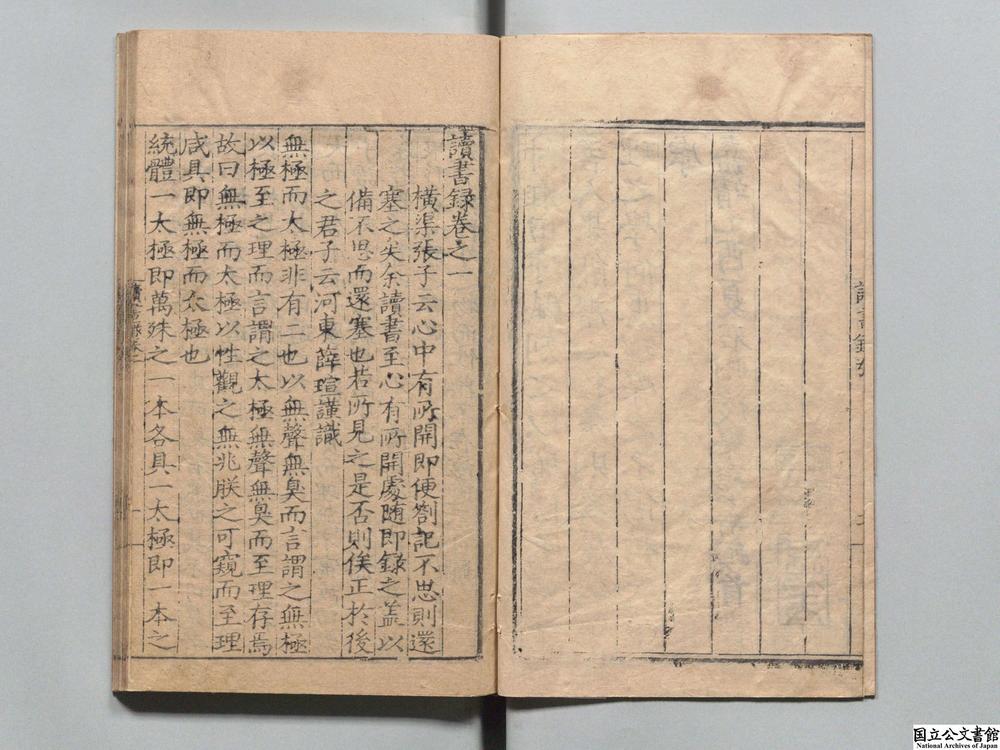 讀書録卷之一
橫渠張子云心中有所開即便劄記不思則還
塞之矣余讀書至心有所開處随即録之盖以
備不思而還塞也若所見之是否則俟正於後
之君子云河東薛瑄謹識
無極而太極非有二也以無聲無臭而言謂之無極
以極至之理而言謂之太極無聲無臭而至理存焉
故曰無極而太極以性觀之無兆朕之可窺而至理
咸具即無極而太極也
統體一太極即萬殊之一本各具一太極即一本之
讀書録卷一
一
国立公文書館
National Archives of Japan